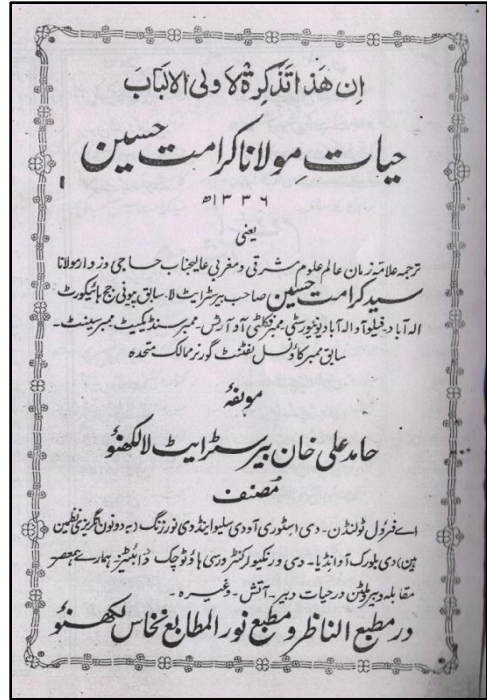 اِن هَذا تَذکِرة لاولی الالباب
حیاتِ مولانا کرامت حسین
۱۳۳۶ھ
یعنی
ترجمہ علامۂ زمان عالم علوم شرقی و مغربی عالیجناب حاجی وزوار مولانا
سید کرامت حسین صاحب بیرسٹرایٹ لا۔ سابق پیونی جج ہائیکورٹ
الہ آباد۔ فیلو آو الہ آباد یونیورسٹی۔ ممبر فکلٹی آو آرٹس۔ ممبر سنڈیکیٹ۔ ممبر سینٹ۔
سابق ممبر کاؤنسل لفٹنٹ گورنر ممالک متحدہ
مولفہٗ
حامد علی خان بیرسٹرایٹ لا لکھنؤ
مُصنف
اے فرول ٹولنڈن۔ دی اسٹوری آو دی سلیو اینڈ دی نورزنگ (یہ دونوں انگریزی نظمین
ہین) دی بلورک آو انڈیا۔ دی ورنیکولر کنٹرورسی ہاؤ ٹو چک ڈائبٹیز ہمارے ہمعصر
مقابلہ دبیر و ملٹن در حیات دبیر۔ آتش۔ وغیرہ۔
در مطبع الناظر و مطبع نور المطابع نخاس لکھنؤ